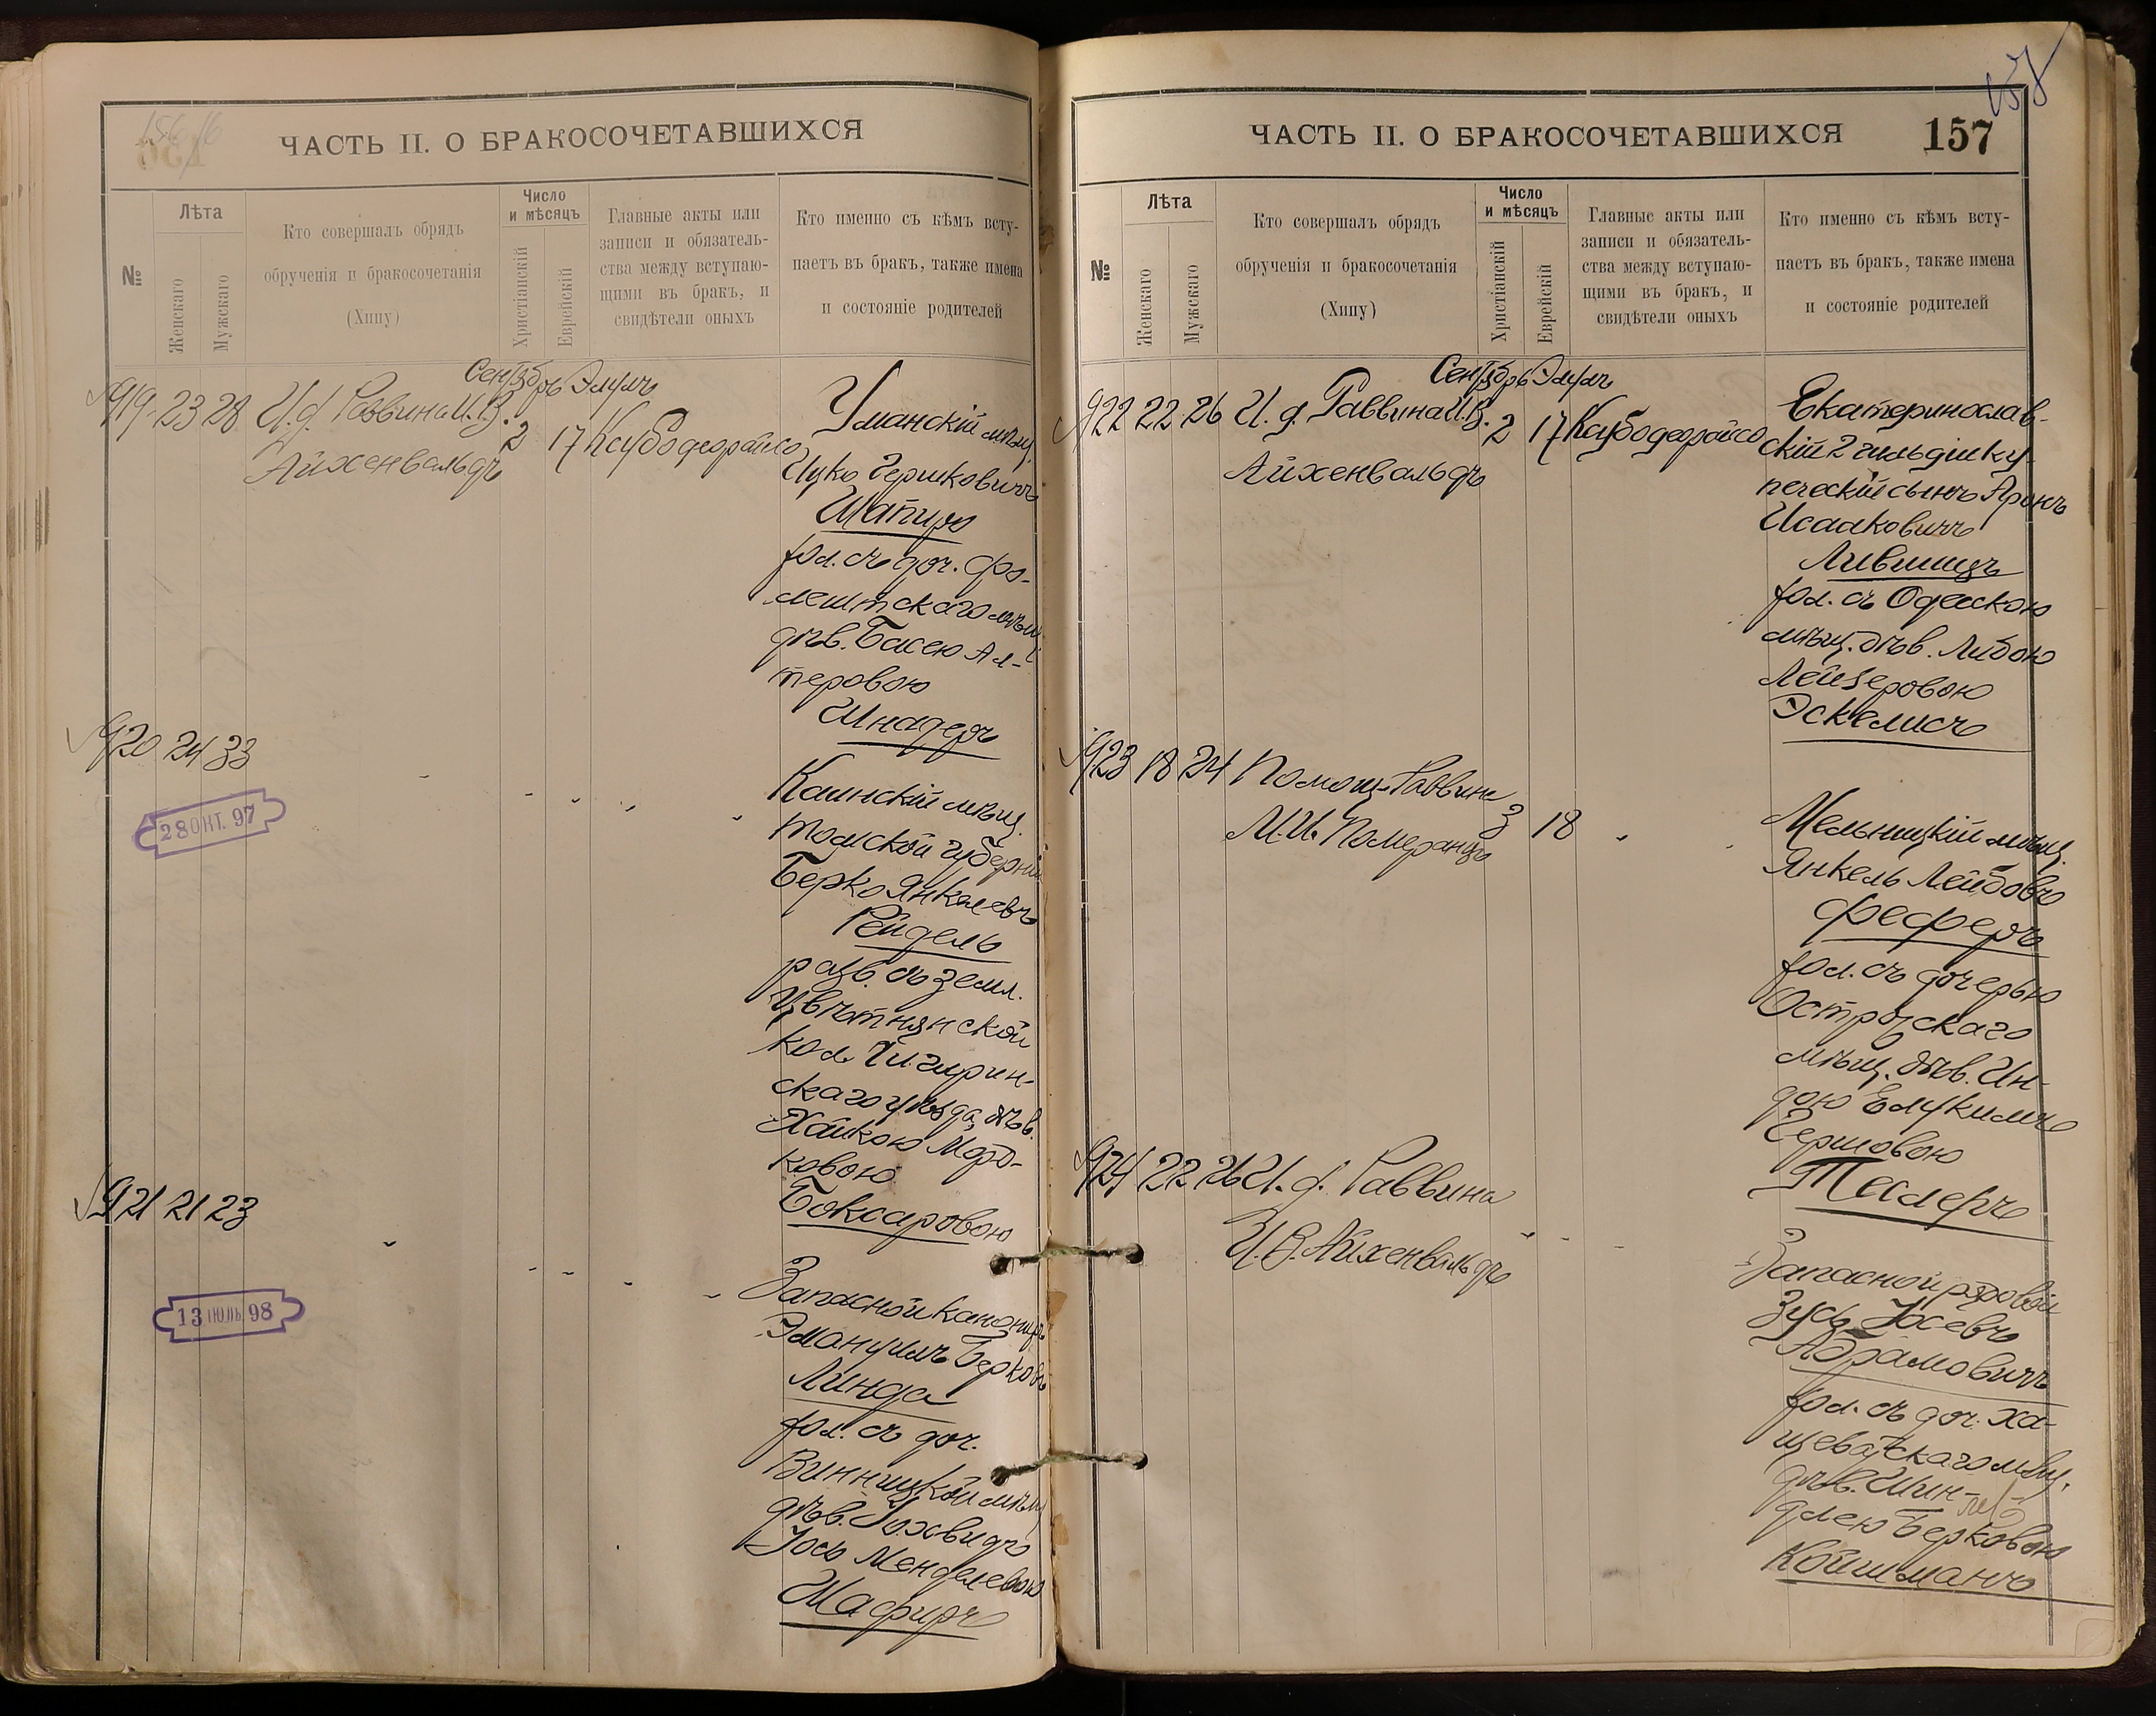 ЧАСТЬ II. О БРАКОСОЧЕТАВШИХСЯ
№
Лѣта
Женскаго
Мужскаго
Кто совершалъ обрядъ
обрученія и бракосочетанія
(Хипу)
Число
и мѣсяцъ
Христіанскій
Еврейскій
Главные акты или
записи и обязатель-
ства между вступаю-
щими въ бракъ, и
свидѣтели оныхъ
Кто именно съ кѣмъ всту-
паетъ въ бракъ, также имена
и состояніе родителей
Сентябрь Элулъ
919 23 28 И. д. Раввина И. В. 2 17
Айхенвальдъ
Уманскій мѣщ.
Ицко Гершковичъ
Шапиро
хол. съ доч. Фа-
лештскаго мѣщ.
дѣв. Басею Ал-
теровою
Шнадеръ
920 24 33
28 ОКТ. 97
Каинскій мѣщ.
Томской губерніи
Берко Янкелевъ
Рейдель
разв. съ земл.
Цвѣтнянской
кол. Чигирин-
скаго уѣзда, дѣв.
Хайкою Морд-
ковою
Боксаровою
921 21 23
13 ІЮЛЬ 98
Запасной канониръ
Эмануилъ Берковъ
Линда
хол. съ доч.
Винницкой мѣщ.
дѣв.
Менделевою
Шафиръ
157
ЧАСТЬ II. О БРАКОСОЧЕТАВШИХСЯ
157
№
Лѣта
Женскаго
Мужскаго
Кто совершалъ обрядъ
обрученія и бракосочетанія
(Хипу)
Число
и мѣсяцъ
Христіанскій
Еврейскій
Главные акты или
записи и обязатель-
ства между вступаю-
щими въ бракъ, и
свидѣтели оныхъ
Кто именно съ кѣмъ всту-
паетъ въ бракъ, также имена
и состояніе родителей
Сентябрь Элулъ
922 22 26 И. д. Раввина И. В. 2 17
Айхенвальдъ
Екатеринослав-
скій 2 гильдіи ку-
печескій сынъ Аронъ
Исааковичъ
Лившицъ
хол. съ Одесскою
мѣщ. дѣв. Либою
Лейзеровою
Эскелисъ
923 18 24 Помощ. Раввина 3 18
М. И. Померанцъ
Мельницкій мѣщ.
Янкель Лейбовъ
Феферъ
хол. съ дочерью
Острожскаго
мѣщ. дѣв. Ин-
дою
Гершовою
Теслеръ
924 22 26 И. д. Раввина
И. В. Айхенвальдъ
Запасной рядовой
Зусь Іосевъ
Абрамовичъ
хол. съ доч. Ха-
щеватскаго мѣщ.
дѣв. Шин-
длею Берковою
Койшманъ